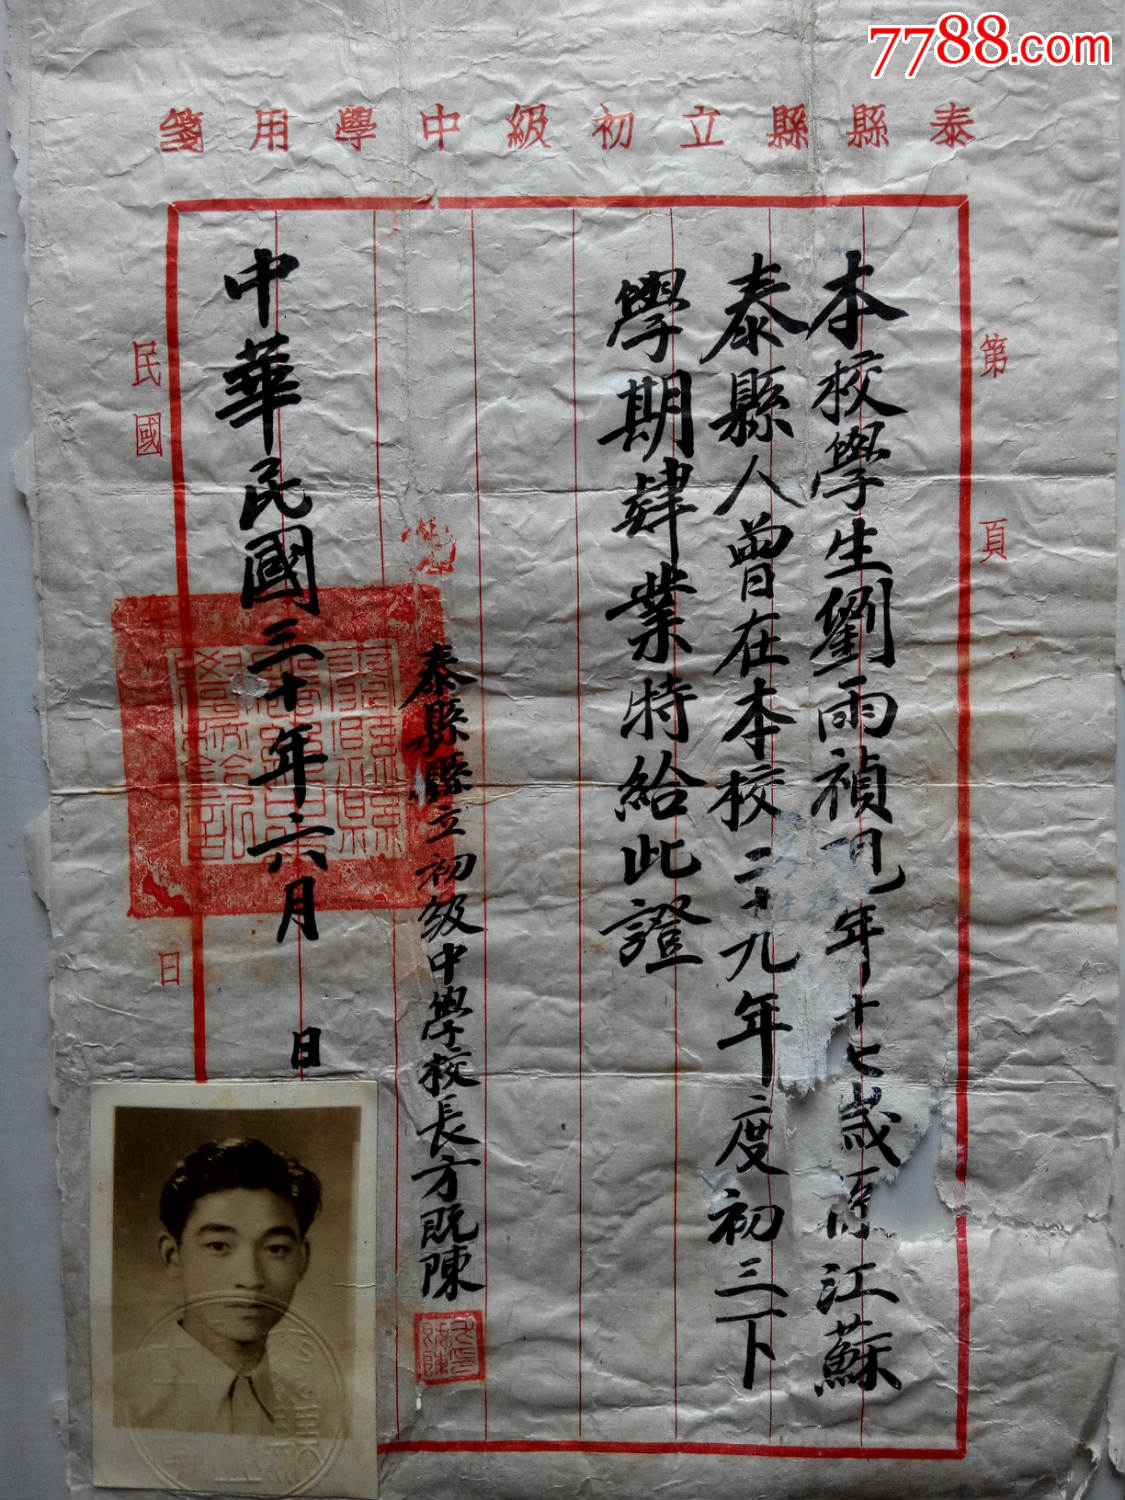 7788.com
泰縣縣立初級中學用箋
第 頁
本校學生劉雨禎現年十七歲係江蘇
泰縣人曾在本校二十九年度初三下
學期肄業特給此證
泰縣縣立初級中學校長方既陳
中華民國三十年六月 日
民國 日